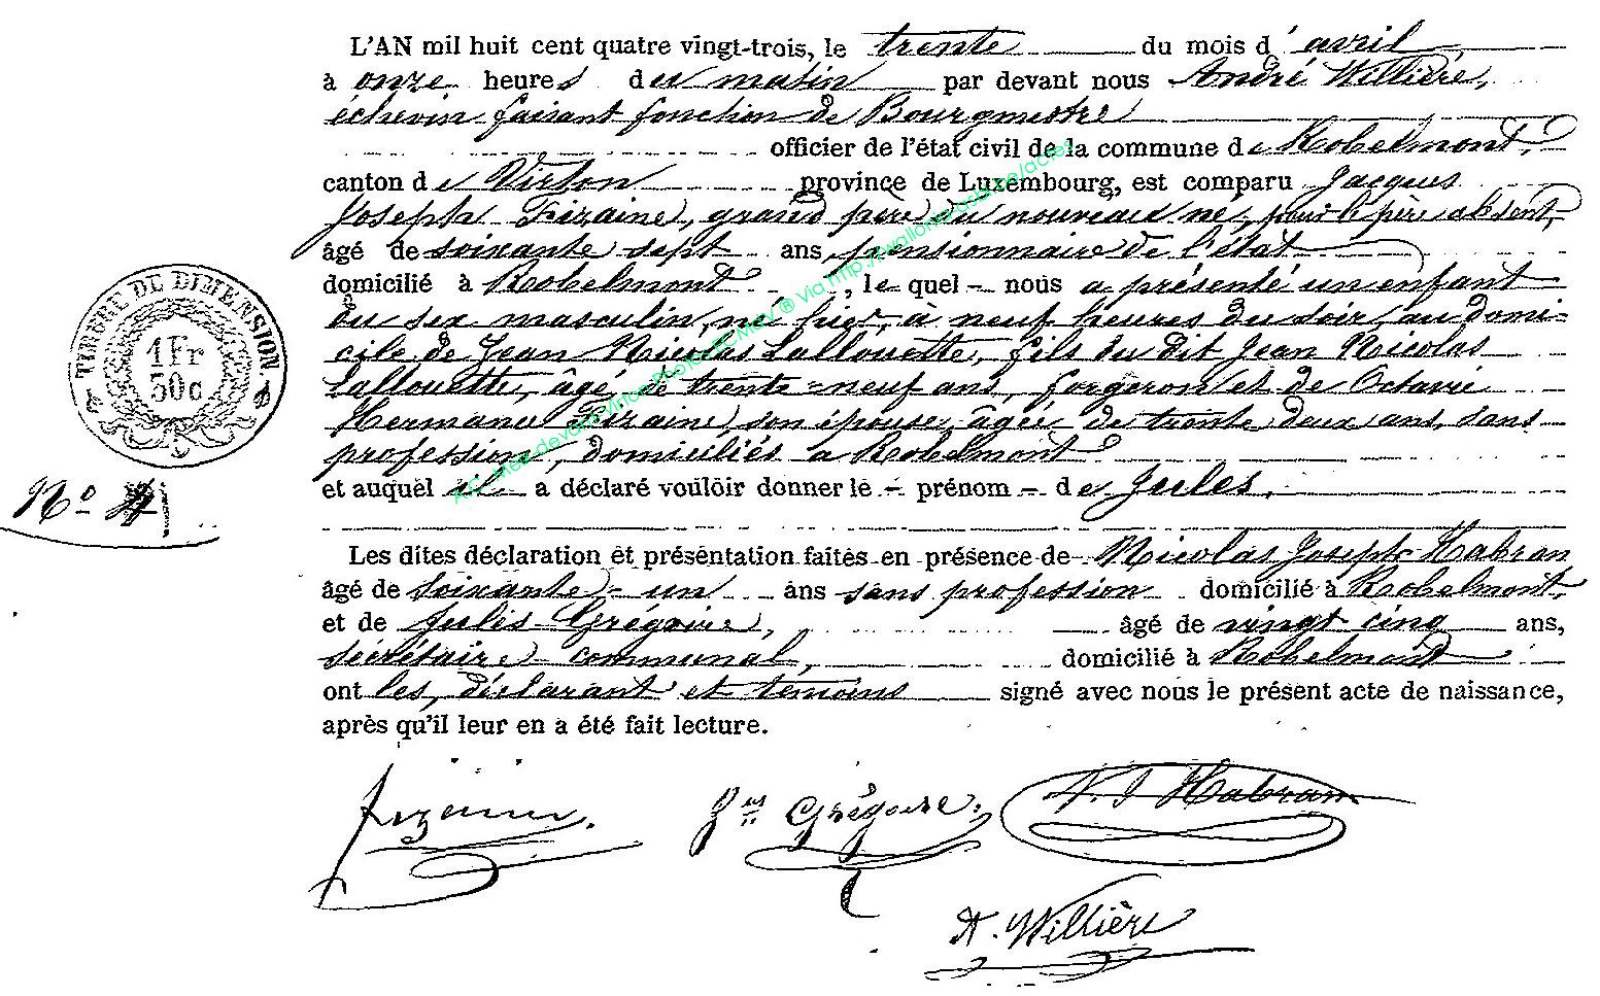 L'AN mil huit cent quatre vingt-trois, le trente du mois d'avril
à onze heures du matin par devant nous André Willière,
échevin faisant fonction de Bourgmestre
officier de l'état civil de la commune de Robelmont,
canton de Virton province de Luxembourg, est comparu Jacques
Joseph Fizaine, grand père du nouveau né, pour le père absent,
âgé de soixante sept ans, pensionnaire de l'état
domicilié à Robelmont, le quel nous a présenté un enfant
du sex masculin, né hier, à neuf heures du soir, au domi-
cile de Jean Nicolas Lallouette, fils du dit Jean Nicolas
Lallouette, âgé de trente-neuf ans, forgeron et de Octavie
Hermane Fizaine, son épouse, âgée de trente deux ans, sans
profession, domiciliés à Robelmont
et auquel il a déclaré vouloir donner le prénom de Jules.
Les dites déclaration et présentation faites en présence de Nicolas Joseph Habran
âgé de soixante-un ans sans profession domicilié à Robelmont,
et de Jules Grégoire, âgé de vingt cinq ans,
secrétaire communal, domicilié à Robelmont
ont les, déclarant et témoins signé avec nous le présent acte de naissance,
après qu'il leur en a été fait lecture.
TIMBRE DE DIMENSION
1 Fr
50c
No
Fizaine.
Jles Grégoire.
N. J Habran
A. Willière